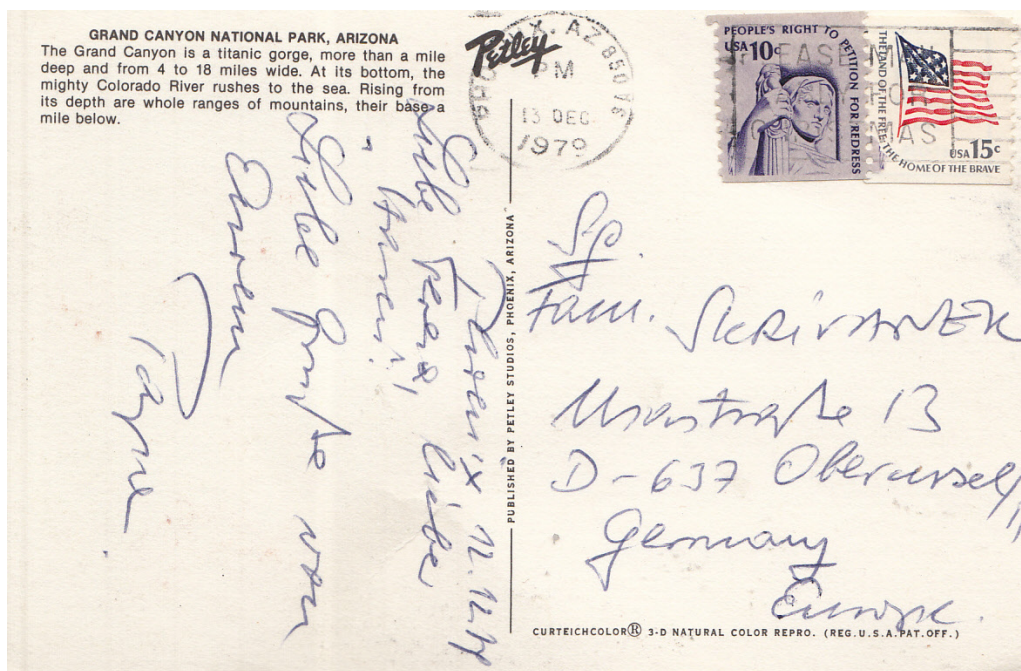 GRAND CANYON NATIONAL PARK, ARIZONA
The Grand Canyon is a titanic gorge, more than a mile
deep and from 4 to 18 miles wide. At its bottom, the
mighty Colorado River rushes to the sea. Rising from
its depth are whole ranges of mountains, their base a
mile below.
Petley
AZ 850
PM
13 DEC
1979
PEOPLE'S RIGHT TO PETITION FOR REDRESS
USA 10c
THE LAND OF THE FREE THE HOME OF THE BRAVE
USA 15c
Phoenix 12.12.79
Liebe
liebe
Liebe Grüße von
Eurem
PUBLISHED BY PETLEY STUDIOS, PHOENIX, ARIZONA
Fam. SKRIVANEK
13
D-637 Oberursel
Germany
Europe.
CURTEICHCOLOR® 3-D NATURAL COLOR REPRO. (REG.U.S.A.PAT.OFF.)